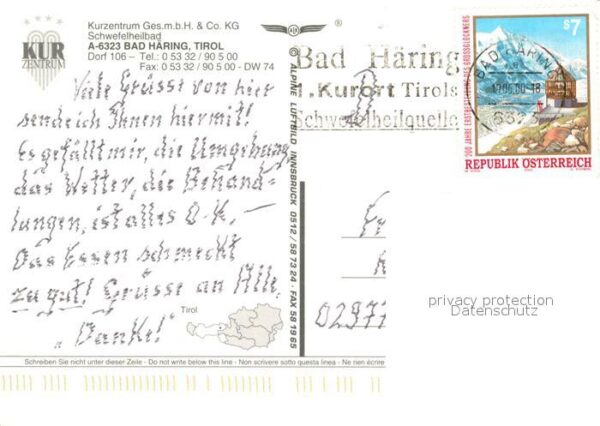 KUR
ZENTRUM
Kurzentrum Ges.m.b.H. & Co. KG
Schwefelheilbad
A-6323 BAD HÄRING, TIROL
Dorf 106 – Tel.: 0 53 32 / 90 5 00
Fax: 0 53 32 / 90 5 00 - DW 74
Viele Grüsse von hier
sende ich Ihnen hiermit!
Es gefällt mir, die Umgebung
das Wetter, die Behand-
lungen, ist alles O.K. –
Das Essen schmeckt
zu gut! Grüsse an Alle,
"Danke!"
Tirol
© ALPINE LUFTBILD INNSBRUCK 0512 / 58 73 24 · FAX 58 19 65
Bad Häring
1. Kurort Tirols
Schwefelheilquelle
BAD HÄRING
6323
S 7
200 JAHRE ERSTBESTEIGUNG DES GROSSGLOCKNERS
REPUBLIK ÖSTERREICH
0297
privacy protection
Datenschutz
Schreiben Sie nicht unter dieser Zeile - Do not write below this line - Non scrivere sotto questa linea - Ne rien écrire